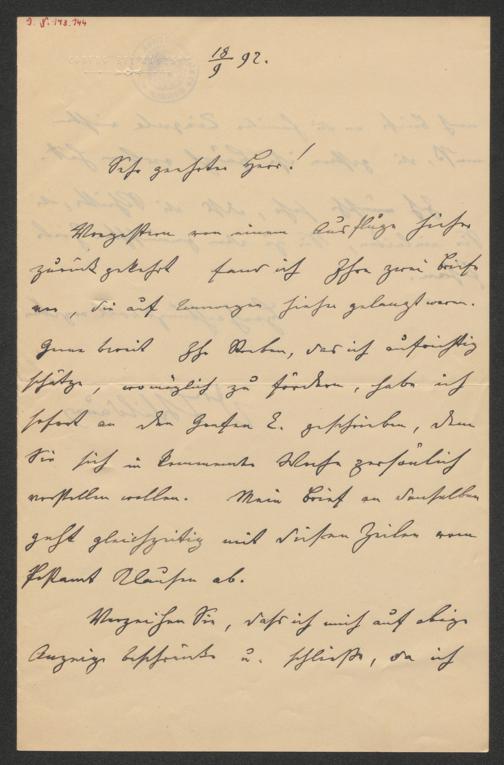 I.N. 198.144
18/9 92.
Sehr geehrter Herr!
Vorgestern von einem Ausfluge hieher
zurückgekehrt fand ich Ihre zwei Briefe
vor, die auf Umwegen hieher gelangt waren.
Gerne bereit Ihr Streben, das ich aufrichtig
schätze, womöglich zu fördern, habe ich
sofort an den Grafen L. geschrieben, dem
Sie sich in kommender Woche persönlich
vorstellen wollen. Mein Brief an denselben
geht gleichzeitig mit diesen Zeilen vom
Postamt Klausen ab.
Verzeihen Sie, dass ich mich auf obige
Anzeige beschränke u. schließe, da ich